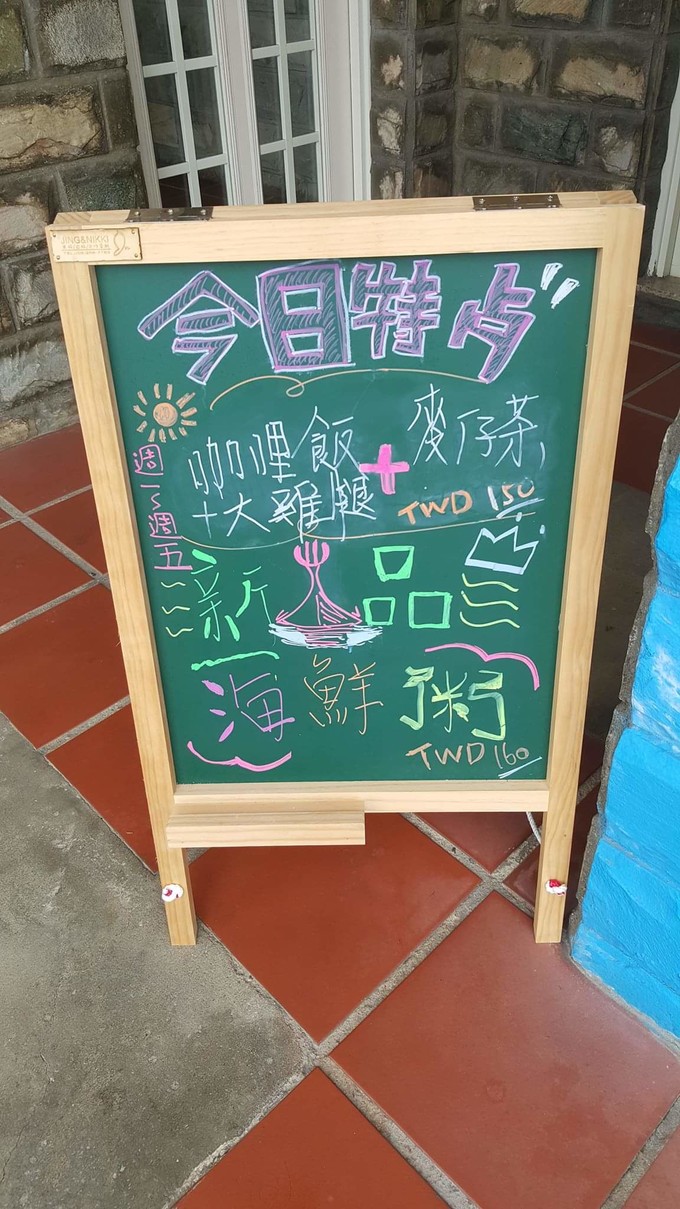 JING&NIKKI
今日特点
週一～週五
咖哩飯 + 麥仔茶
+大雞腿 TWD 150
新品
海鮮粥
TWD 160